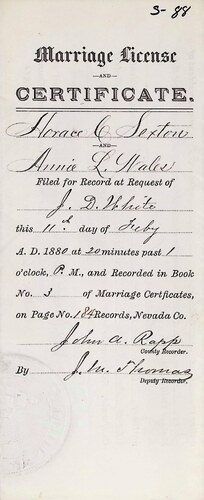 3-88
Marriage License
AND
CERTIFICATE.
Horace C. Sexton
AND
Annie L. Wales
Filed for Record at Request of
J. D. White
this 11th day of Feby
A. D. 1880 at 20 minutes past 1
o'clock, P. M., and Recorded in Book
No. 3 of Marriage Certficates,
on Page No. 184 Records, Nevada Co.
John A. Rapp
County Recorder.
By J. M. Thomas
Deputy Recorder.